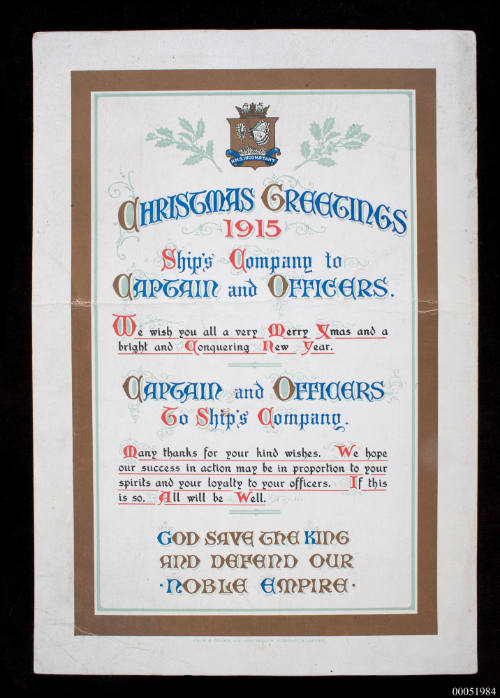 H.M.S. INCONSTANT
CHRISTMAS GREETINGS
1915
Ship's Company to
CAPTAIN and OFFICERS.
We wish you all a very Merry Xmas and a
bright and Conquering New Year.
CAPTAIN and OFFICERS
To Ship's Company.
Many thanks for your kind wishes. We hope
our success in action may be in proportion to your
spirits and your loyalty to your officers. If this
is so, All will be Well.
GOD SAVE THE KING
AND DEFEND OUR
· NOBLE EMPIRE ·
00051984